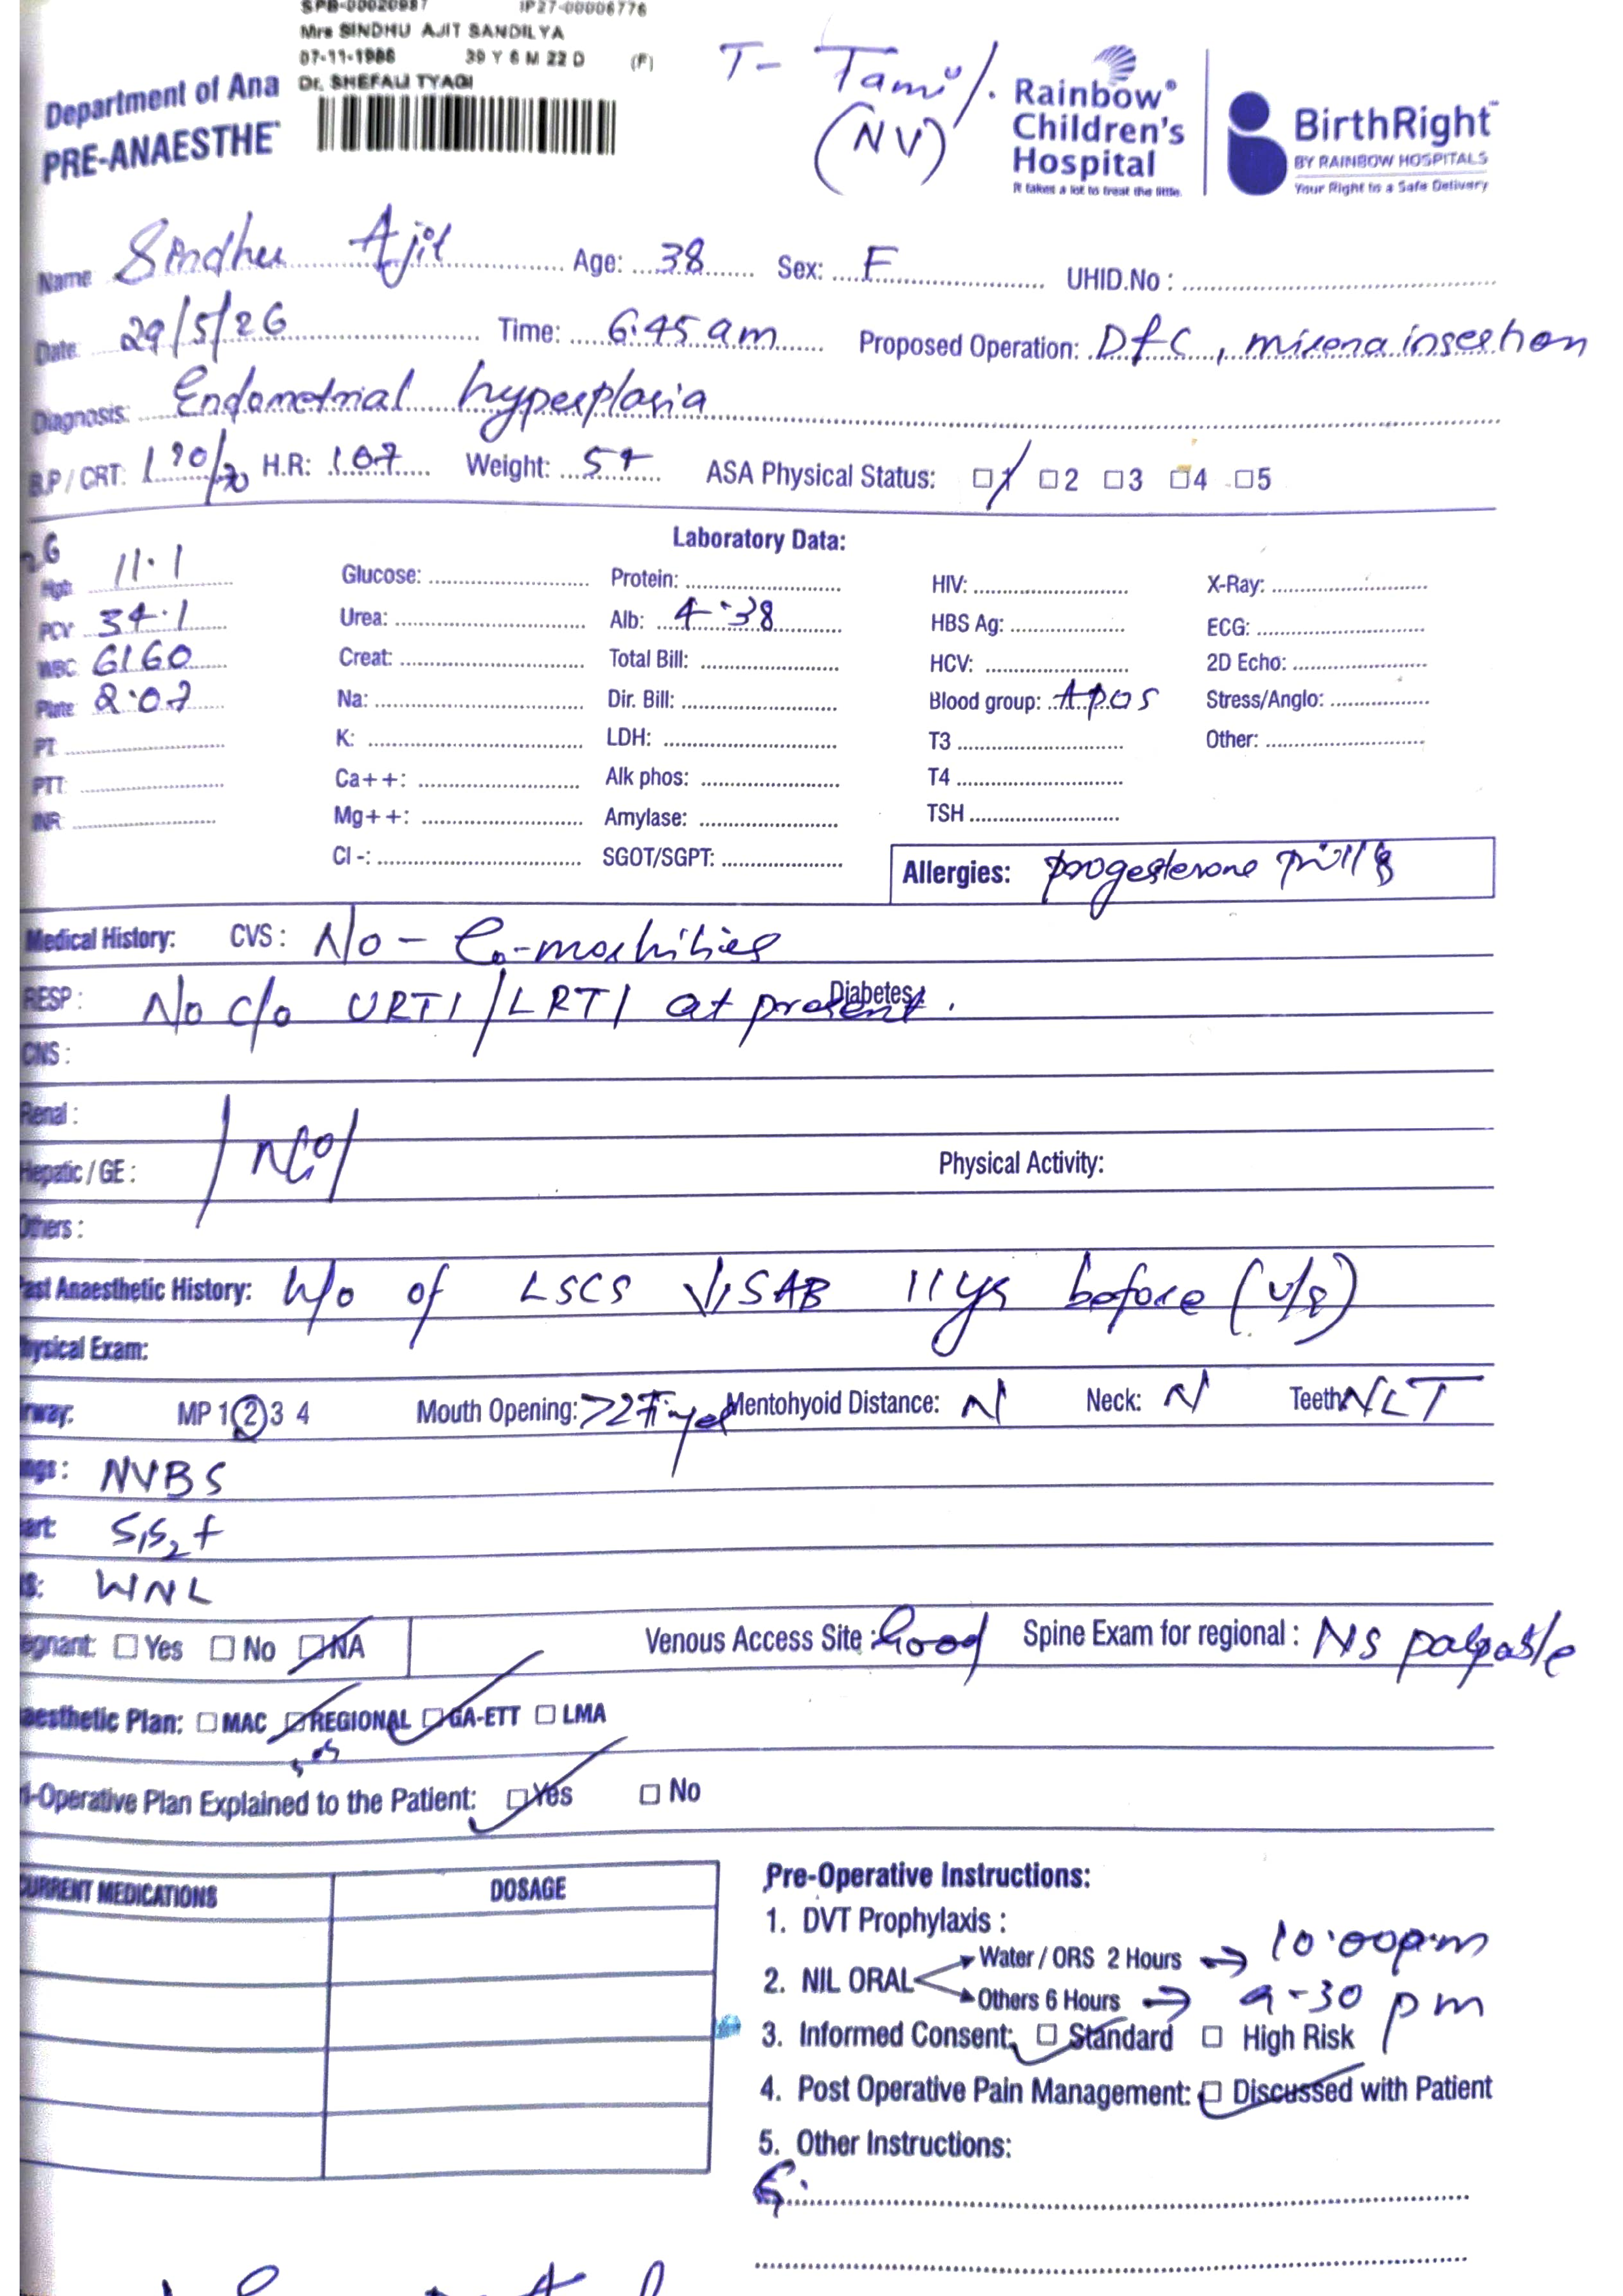 SPB-00020987 IP27-00006776
Mrs SINDHU AJIT SANDILYA
07-11-1986 39 Y 6 M 22 D (F)
Dr. SHEFALI TYAGI
T- Tamil.
(NV)
Rainbow®
Children's
Hospital
It takes a lot to treat the little.
BirthRight™
BY RAINBOW HOSPITALS
Your Right to a Safe Delivery
Department of Ana
PRE-ANAESTHE
Name Sindhu Ajit Age: 38 Sex: F UHID.No :
Date 29/5/26 Time: 6.45 am Proposed Operation: D&C, mirena insertion
Diagnosis: Endometrial hyperplasia
B.P / CRT: /70 H.R: 107 Weight: ASA Physical Status: 1 2 3 4 5
Laboratory Data:
Hgb 11.1 Glucose: Protein: HIV: X-Ray:
PCV 34.1 Urea: Alb: 4.38 HBS Ag: ECG:
WBC 6160 Creat: Total Bill: HCV: 2D Echo:
Plate 2.07 Na: Dir. Bill: Blood group: A pos Stress/Anglo:
PT K: LDH: T3 Other:
PTT Ca++: Alk phos: T4
INR Mg++: Amylase: TSH
Cl -: SGOT/SGPT: Allergies: progesterone pills
Medical History: CVS : No - Co-morbities
RESP : No c/o URTI/LRTI at present. Diabetes :
CNS :
Renal :
Hepatic / GE : Physical Activity:
Others :
ast Anaesthetic History: h/o of LSCS SAB 11 ys before
ysical Exam:
rway: MP 1 2 3 4 Mouth Opening: >2 Finger Mentohyoid Distance: N Neck: N Teeth NLT
ngs : NVBS
art: S1S2 +
S: WNL
egnant: Yes No NA Venous Access Site : Good Spine Exam for regional : NS palpable
aesthetic Plan: MAC REGIONAL GA-ETT LMA
sos
-Operative Plan Explained to the Patient: Yes No
CURRENT MEDICATIONS DOSAGE
Pre-Operative Instructions:
1. DVT Prophylaxis :
2. NIL ORAL Water / ORS 2 Hours → 10.00pm
Others 6 Hours → 9-30 pm
3. Informed Consent: Standard High Risk
4. Post Operative Pain Management: Discussed with Patient
5. Other Instructions: